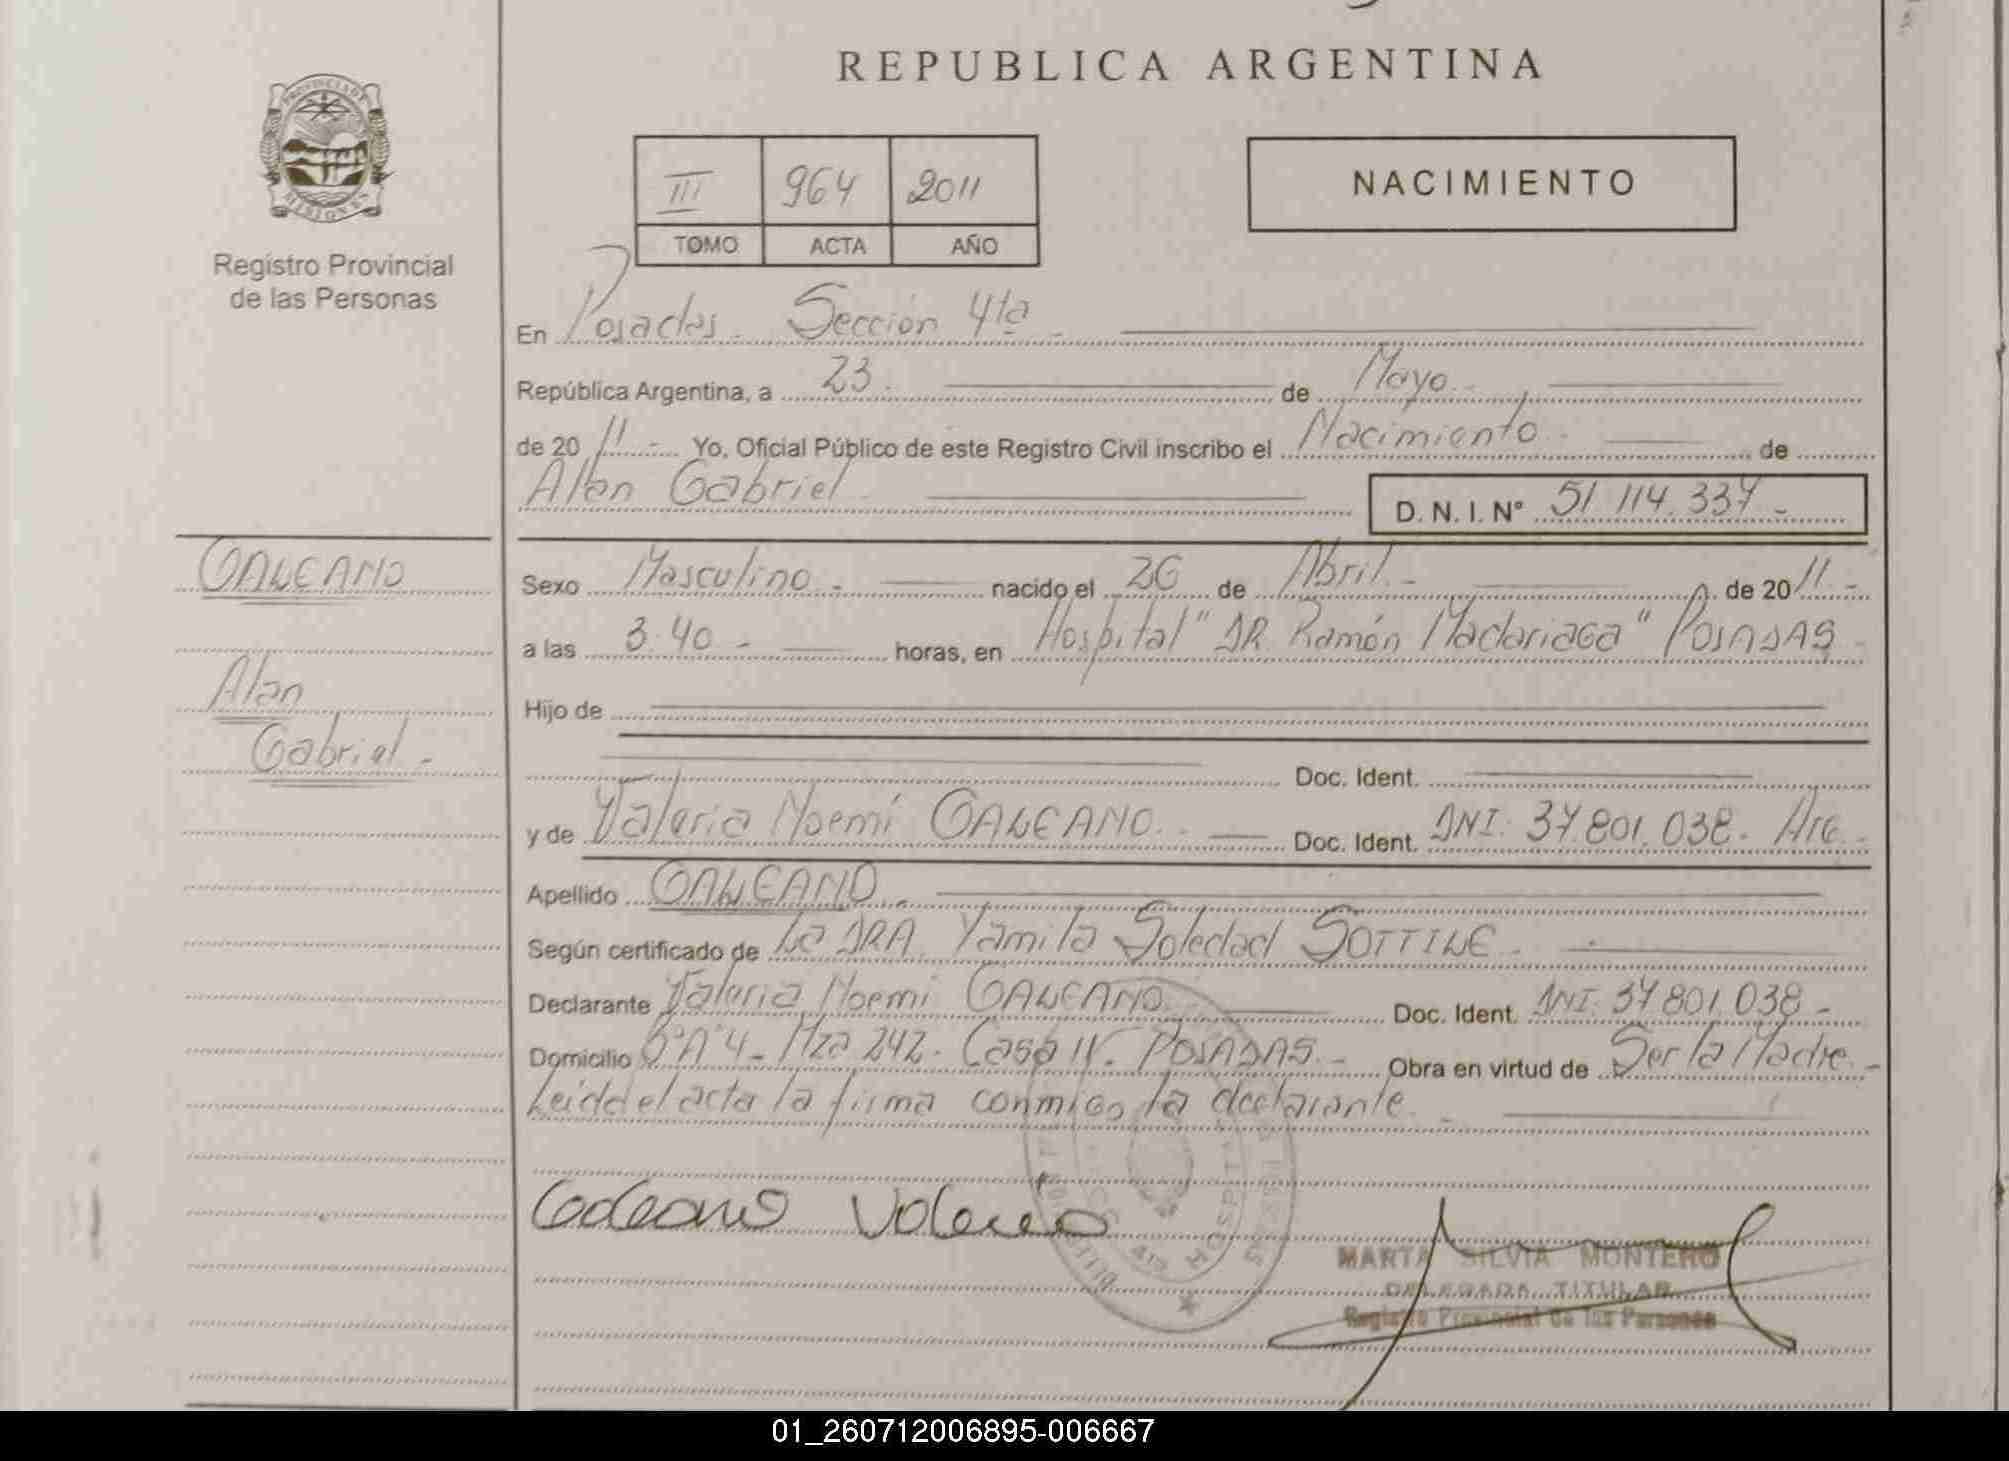 REPUBLICA ARGENTINA
PROVINCIA DE MISIONES
Registro Provincial
de las Personas
III 964 2011
TOMO ACTA AÑO
NACIMIENTO
En Posadas. Sección 4ta.
República Argentina, a 23. de Mayo.
de 20 11.- Yo, Oficial Público de este Registro Civil inscribo el Nacimiento. de
Alan Gabriel. D. N. I. N° 51.114.337.-
GALEANO
Alan
Gabriel.-
Sexo Masculino.- nacido el 26 de Abril.- de 20 11.-
a las 3:40.- horas, en Hospital "DR. Ramón Madariaga" POSADAS.-
Hijo de
Doc. Ident.
y de Valeria Noemí GALEANO.- Doc. Ident. DNI. 37.801.038. Arg.-
Apellido GALEANO.
Según certificado de La DRA. Yamila Soledad SOTTILE.-
Declarante Valeria Noemí GALEANO. Doc. Ident. DNI. 37.801.038.-
Domicilio Mza 242. Casa POSADAS.- Obra en virtud de Ser la Madre.-
Leida el acta la firma conmigo la declarante.-
Galeano Valeria
HOSPITAL
MARTA SILVIA MONTERO
DELEGADA TITULAR
Registro Provincial de las Personas
01_260712006895-006667